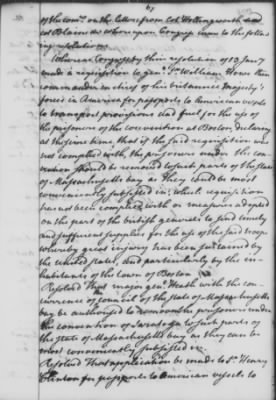 67
of the comee. on the letters from Col Hollingsworth and
Col Blaine &c Whereupon Congress came to the follow
ing resolutions
Whereas Congress by their resolution of 13 Jany
made a requisition to genl. Sr William Howe then
commander in chief of his britannic Majesty's
forces in America for passports to American vessels
to transport provisions and fuel for the use of
the prisoners of the convention at Boston, declaring
at the same time that if the said requisition was
not complied with, the prisoners under the con
vention should be removed to such parts of the state
of Massachusetts bay as they could be most
conveniently subsisted in; which requisition
has not been complied with or measures adopted
on the part of the british generals to send timely
and sufficient supplies for the use of the said troops
whereby great injury has been sustained by
the united states, and particularly by the in-
habitants of the town of Boston
Resolved That major genl. Heath with the con
currence of council of the state of Massachusetts
bay be authorised to remove the prisoners under
the convention of Saratoga to such parts of
the state of Massachusetts bay as they can be
most conveniently subsisted in.
Resolved That application be made to Sr. Henry
Clinton for passports to American vessels to